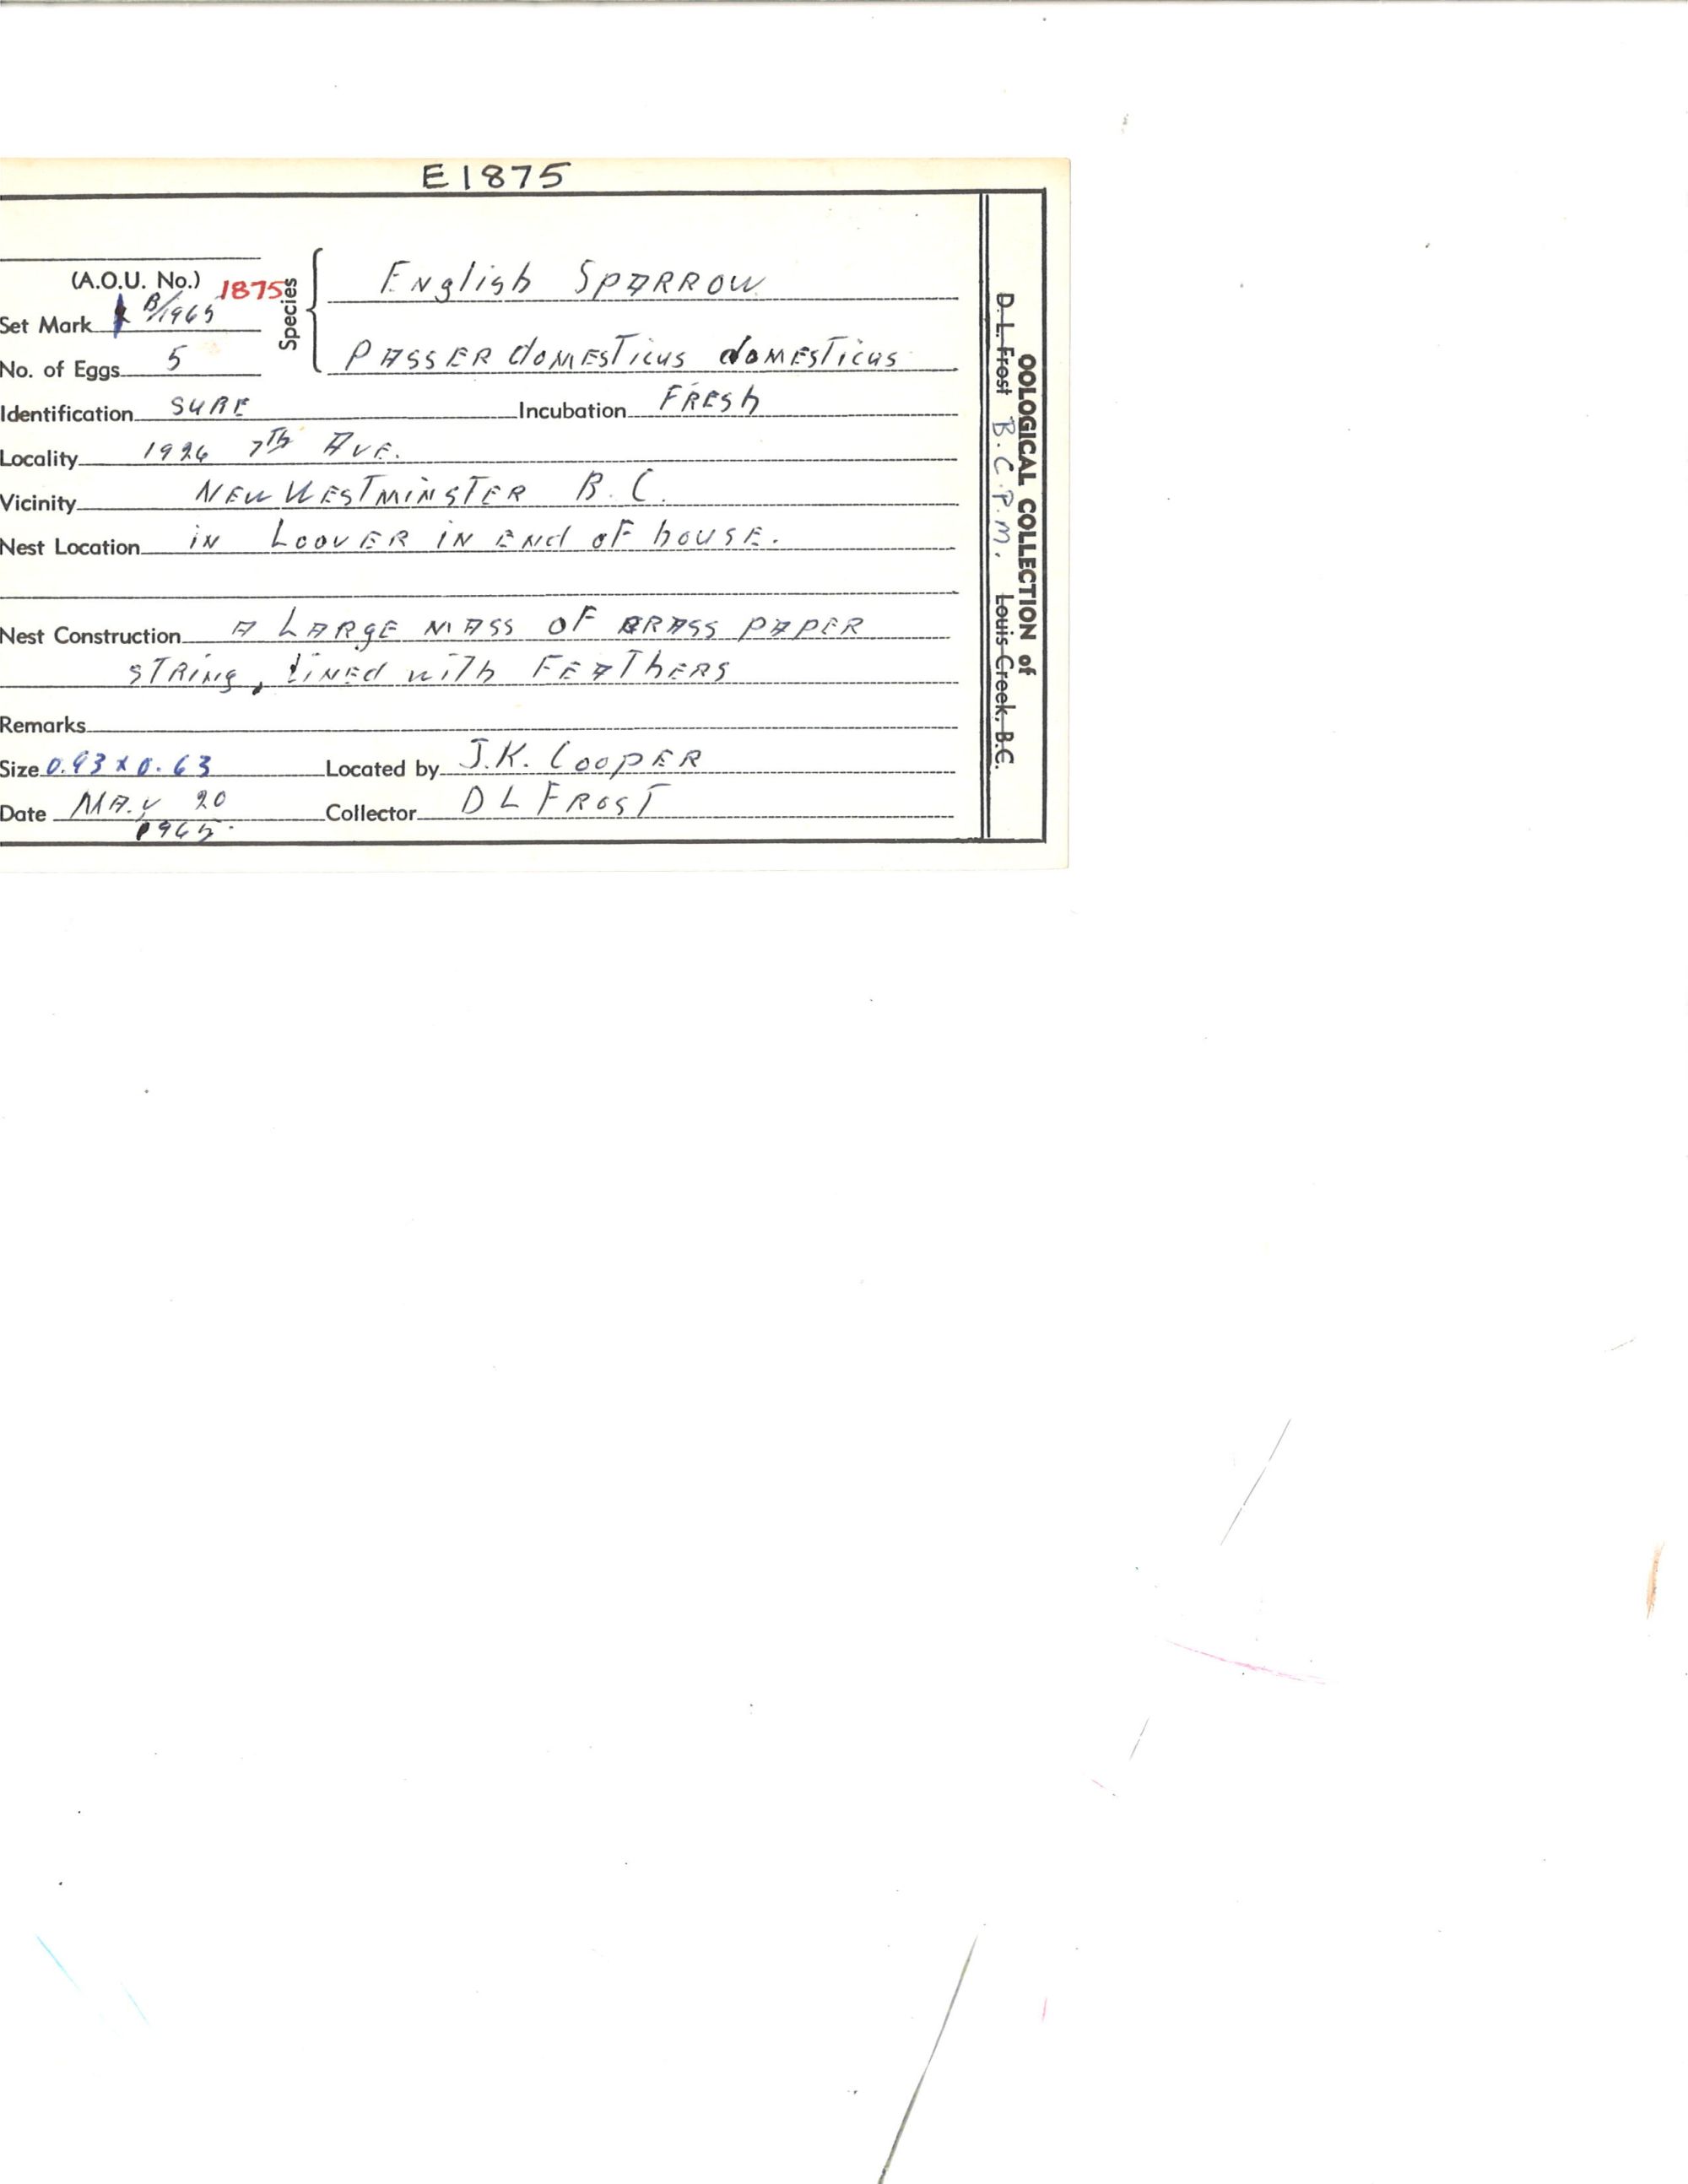 E1875
(A.O.U. No.) 1875
Species { English Sparrow
Passer domesticus domesticus
Set Mark B/1965
No. of Eggs 5
Identification Sure Incubation Fresh
Locality 1926 7th Ave.
Vicinity New Westminster B.C.
Nest Location in Loover in end of house.
Nest Construction A Large mass of grass paper
string, lined with Feathers
Remarks
Size 0.93 x 0.63 Located by J.K. Cooper
Date May 20 Collector D L Frost
1965.
OOLOGICAL COLLECTION of
D. L. Frost B.C.P.M. Louis Creek, B.C.